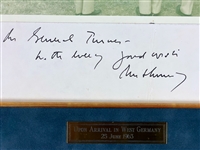 General Turner—
with every good wish
UPON ARRIVAL IN WEST GERMANY
23 JUNE 1963